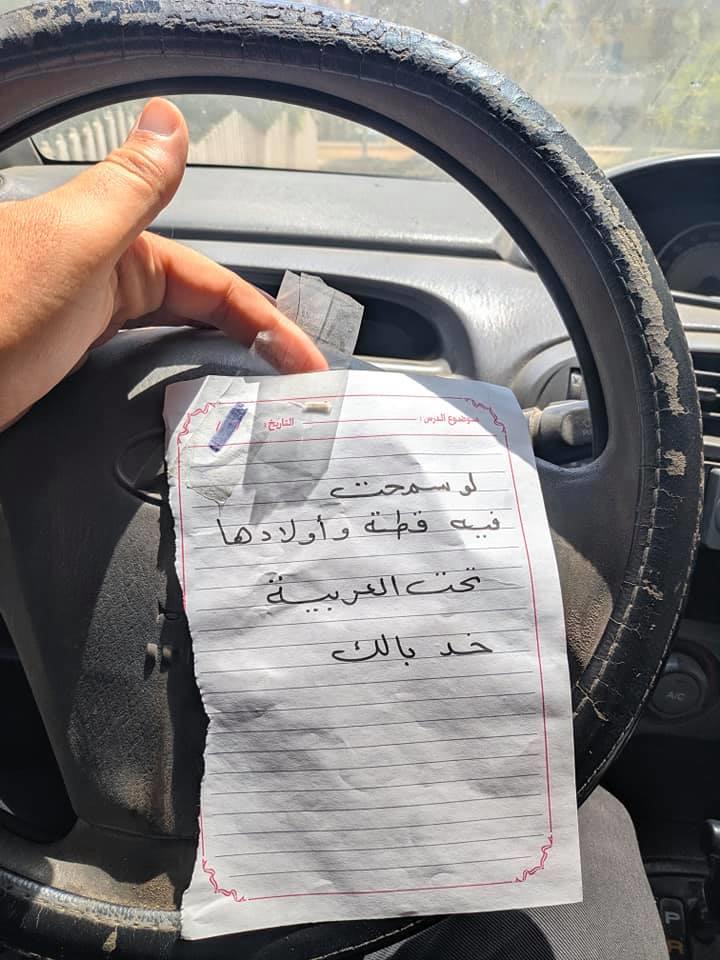 موضوع الدرس: التاريخ: / /
لو سمحت
فيه قطة وأولادها
تحت العربية
خد بالك
A/C
P
R